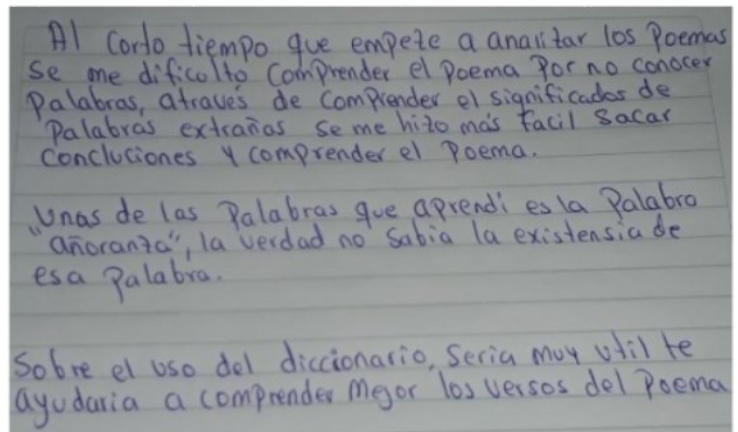 Al corto tiempo que empeze a analitar los Poemas
se me dificolto comprender el poema Por no conocer
Palabras, atraves de comprender el significados de
Palabras extrañas se me hizo más facil sacar
concluciones y comprender el Poema.
Unas de las Palabras que aprendi es la Palabra
"añoranza", la verdad no sabia la existensia de
esa Palabra.
Sobre el uso del diccionario, seria muy util te
ayudaria a comprender mejor los versos del Poema